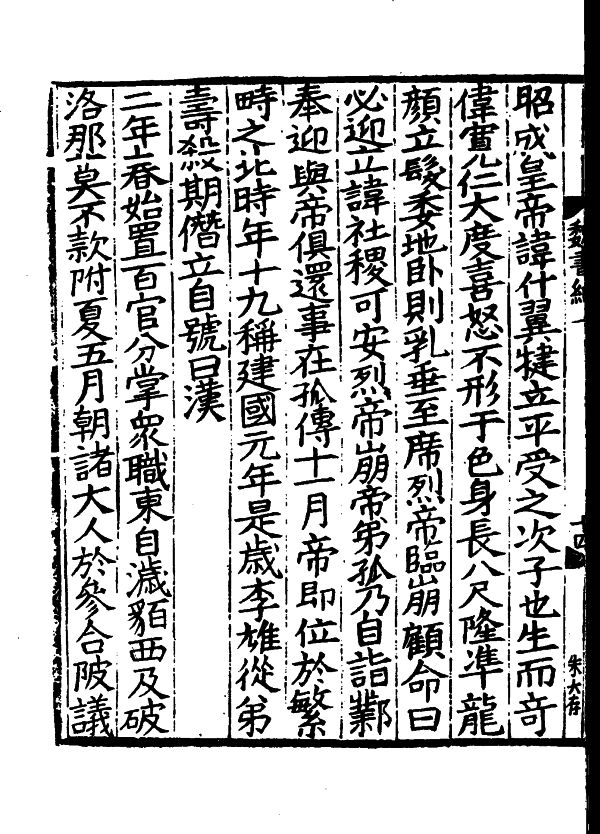 魏書紀一
十四
朱大存
昭成皇帝諱什翼犍立平受之次子也生而奇
偉寬仁大度喜怒不形于色身長八尺隆準龍
顏立髮委地臥則乳垂至席烈帝臨崩顧命曰
必迎立諱社稷可安烈帝崩帝弟孤乃自詣鄴
奉迎與帝俱還事在孤傳十一月帝即位於繁
畤之北時年十九稱建國元年是歲李雄從弟
壽殺期僭立自號曰漢
二年春始置百官分掌衆職東自濊貊西及破
洛那莫不款附夏五月朝諸大人於參合陂議